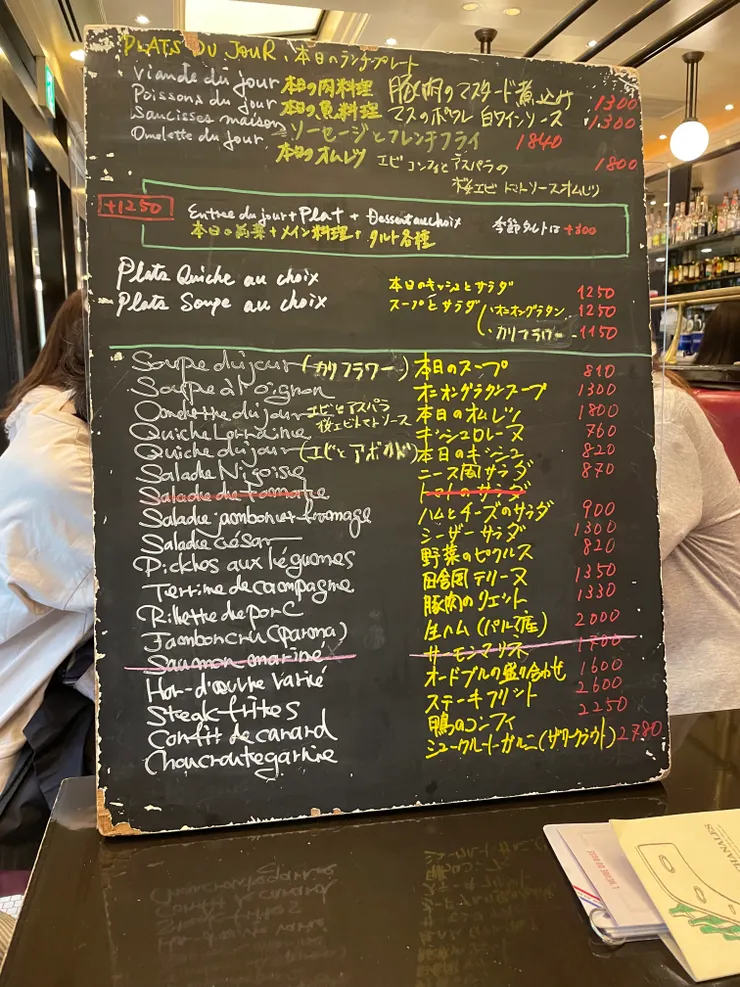 PLATS DU JOUR、本日のランチプレート
Viande du jour 本日の肉料理 豚肉のマスタード煮込み 1300
Poissons du jour 本日の魚料理 マスのポワレ 白ワインソース 1300
Saucisses maison ソーセージとフレンチフライ 1840
Omelette du jour 本日のオムレツ エビコンフィとアスパラの 1800
桜エビトマトソースオムレツ
+1250 Entrée du jour + Plat + Dessert au choix 季節タルトは+300
本日の前菜+メイン料理+タルト各種
Plats Quiche au choix 本日のキッシュとサラダ 1250
Plats Soupe au choix スープとサラダ オニオングラタン 1250
カリフラワー 1150
Soupe du jour (カリフラワー) 本日のスープ 810
Soupe à l'oignon オニオングラタンスープ 1300
Omelette du jour エビとアスパラ 桜エビトマトソース 本日のオムレツ 1800
Quiche Lorraine キッシュロレーヌ 760
Quiche du jour (エビとアボカド) 本日のキッシュ 820
Salade Niçoise ニース風サラダ 870
Salade de Tomate トマトのサラダ
Salade jambon et fromage ハムとチーズのサラダ 900
Salade César シーザーサラダ 1300
Pickles aux légumes 野菜のピクルス 820
Terrine de campagne 田舎風テリーヌ 1350
Rillette de porc 豚肉のリエット 1330
Jambon cru (Parma) 生ハム(パルマ産) 2000
Saumon mariné サーモンマリネ 1700
Hor-d'œuvre varié オードブルの盛り合わせ 1600
Steak-frites ステーキフリット 2600
Confit de canard 鴨のコンフィ 2250
Choucroute garnie シュークルートガルニ(ザワークラウト) 2780